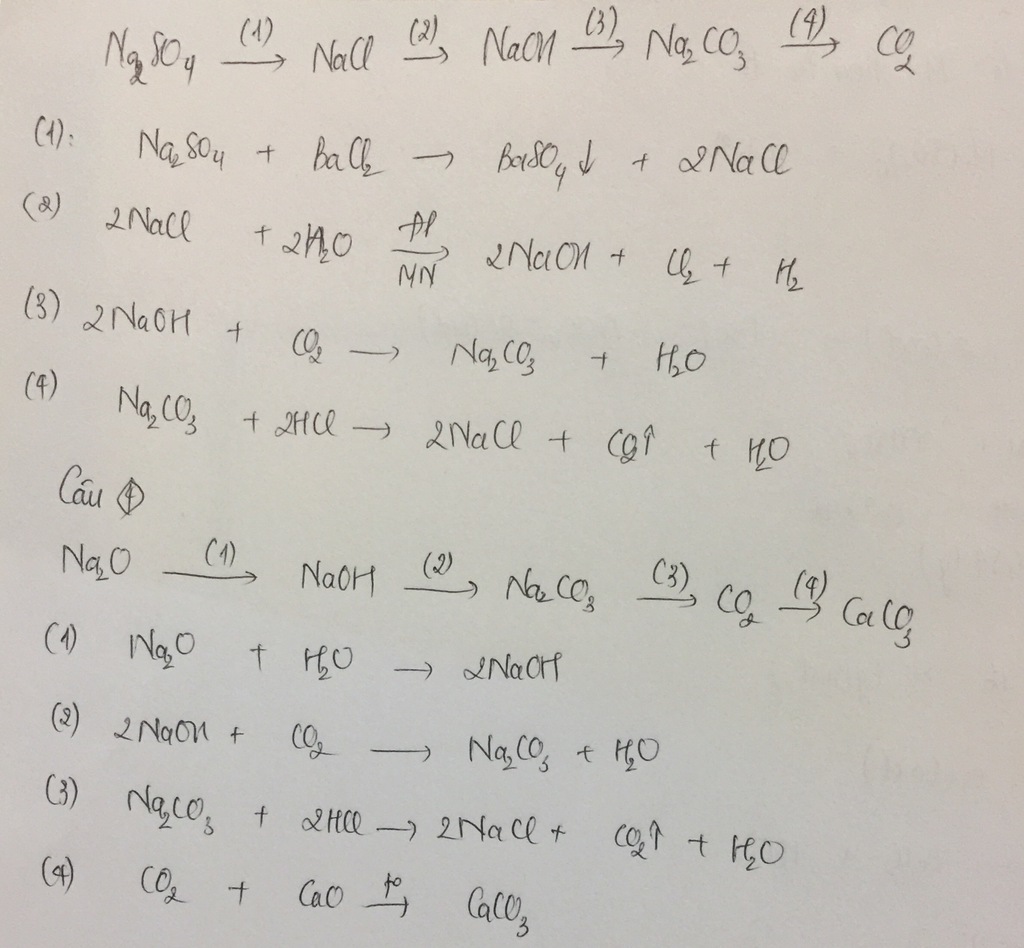 Na₂SO₄ —(1)→ NaCl —(2)→ NaOH —(3)→ Na₂CO₃ —(4)→ CO₂
(1): Na₂SO₄ + BaCl₂ → BaSO₄↓ + 2NaCl
(2) 2NaCl + 2H₂O —đp/MN→ 2NaOH + Cl₂ + H₂
(3) 2NaOH + CO₂ → Na₂CO₃ + H₂O
(4) Na₂CO₃ + 2HCl → 2NaCl + CO₂↑ + H₂O
Câu
Na₂O —(1)→ NaOH —(2)→ Na₂CO₃ —(3)→ CO₂ —(4)→ CaCO₃
(1) Na₂O + H₂O → 2NaOH
(2) 2NaOH + CO₂ → Na₂CO₃ + H₂O
(3) Na₂CO₃ + 2HCl → 2NaCl + CO₂↑ + H₂O
(4) CO₂ + CaO —t°→ CaCO₃